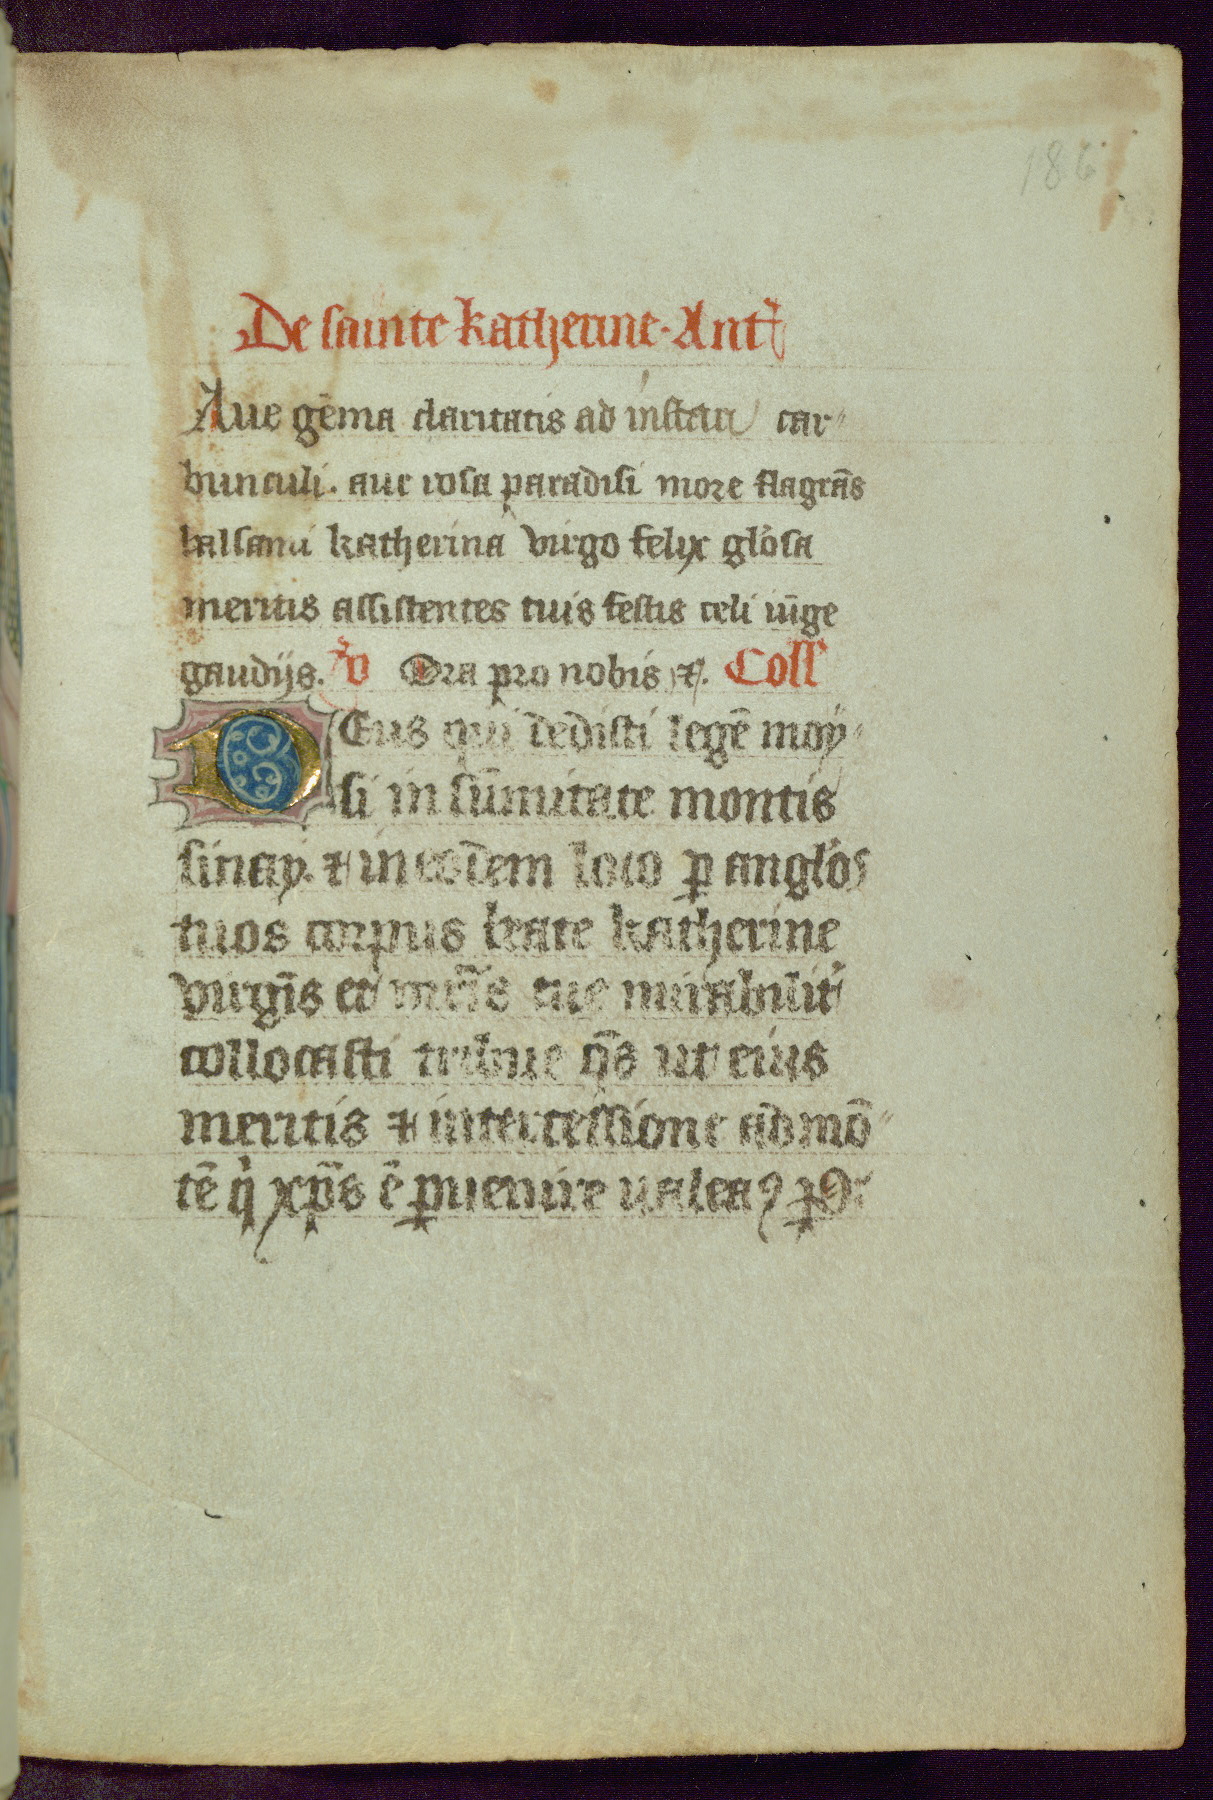 186
De sainte katherine. Ant
Aue gēma claritatis ad instar car
bunculi. aue rosa paradisi more flagrās
balsami katherina virgo felix gl'osa
meritis assistentes tuis festis celi iūge
gaudijs. V Ora pro nobis ⁊c. Coll
Deus qui dedisti legē moy
si in sūmitate montis
sinay. ⁊ in eodem loco ꝑ angl'os
tuos corpus beate katherine
virgīs et mr̄is tue mirabilit'
collocasti tribue q̄s ut eius
meritis ⁊ intercessione ad mō
tē q̇ xp̄s ē ꝑuenire ualeaꝰ ꝑ